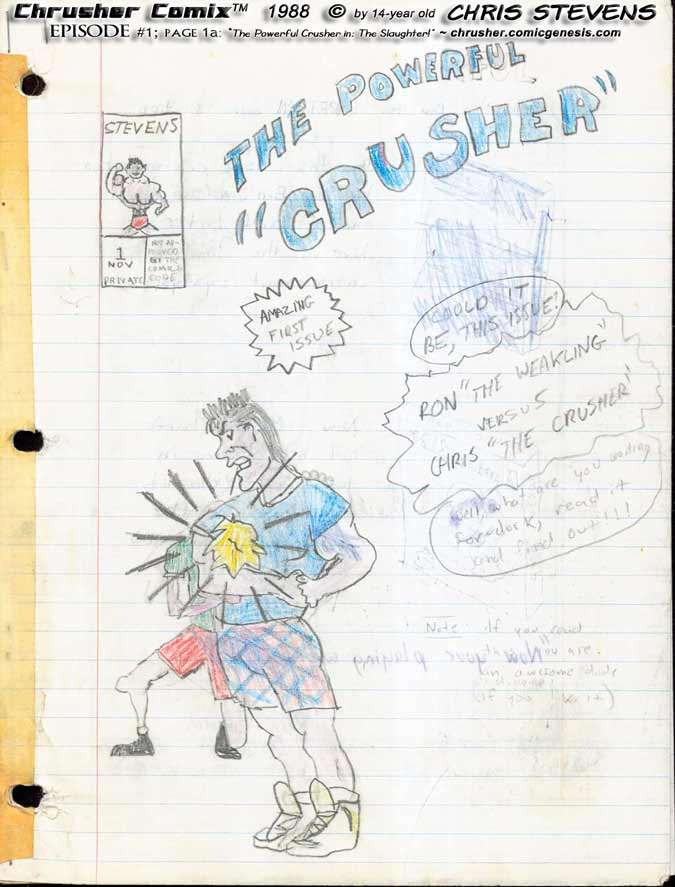 Chrusher Comix™ 1988 © by 14-year old CHRIS STEVENS
EPISODE #1; PAGE 1a: "The Powerful Crusher in: The Slaughter!" ~ chrusher.comicgenesis.com
THE POWERFUL
"CRUSHER"
STEVENS
1
NOV
PRIVATE
NOT AP-
PROVED
BY THE
COMICS
CODE
AMAZING
FIRST
ISSUE
COULD IT
BE, THIS ISSUE!
RON "THE WEAKLING"
VERSUS
CHRIS "THE CRUSHER"
Well, what are you waiting
for dork, read it
and find out!!!
Note: If you read
you are
an awesome dude
(if you like it)
Now your playing w